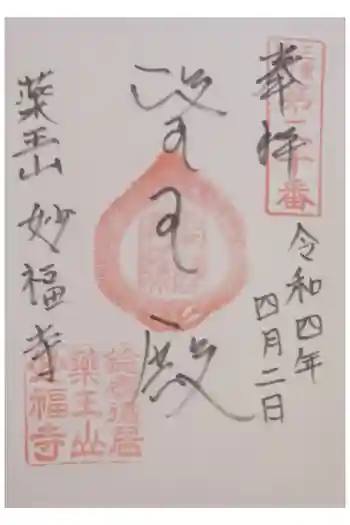 奉拝
令和四年
四月二日
王
殿
薬王山 妙福寺
番
鈴鹿徳居
薬王山
妙福寺